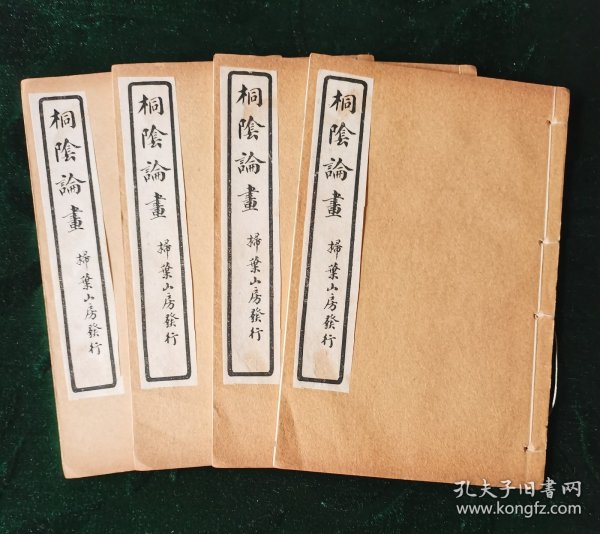 桐陰論畫
掃葉山房發行
桐陰論畫
掃葉山房發行
桐陰論畫
掃葉山房發行
桐陰論畫
掃葉山房發行
孔夫子旧书网
www.kongfz.com